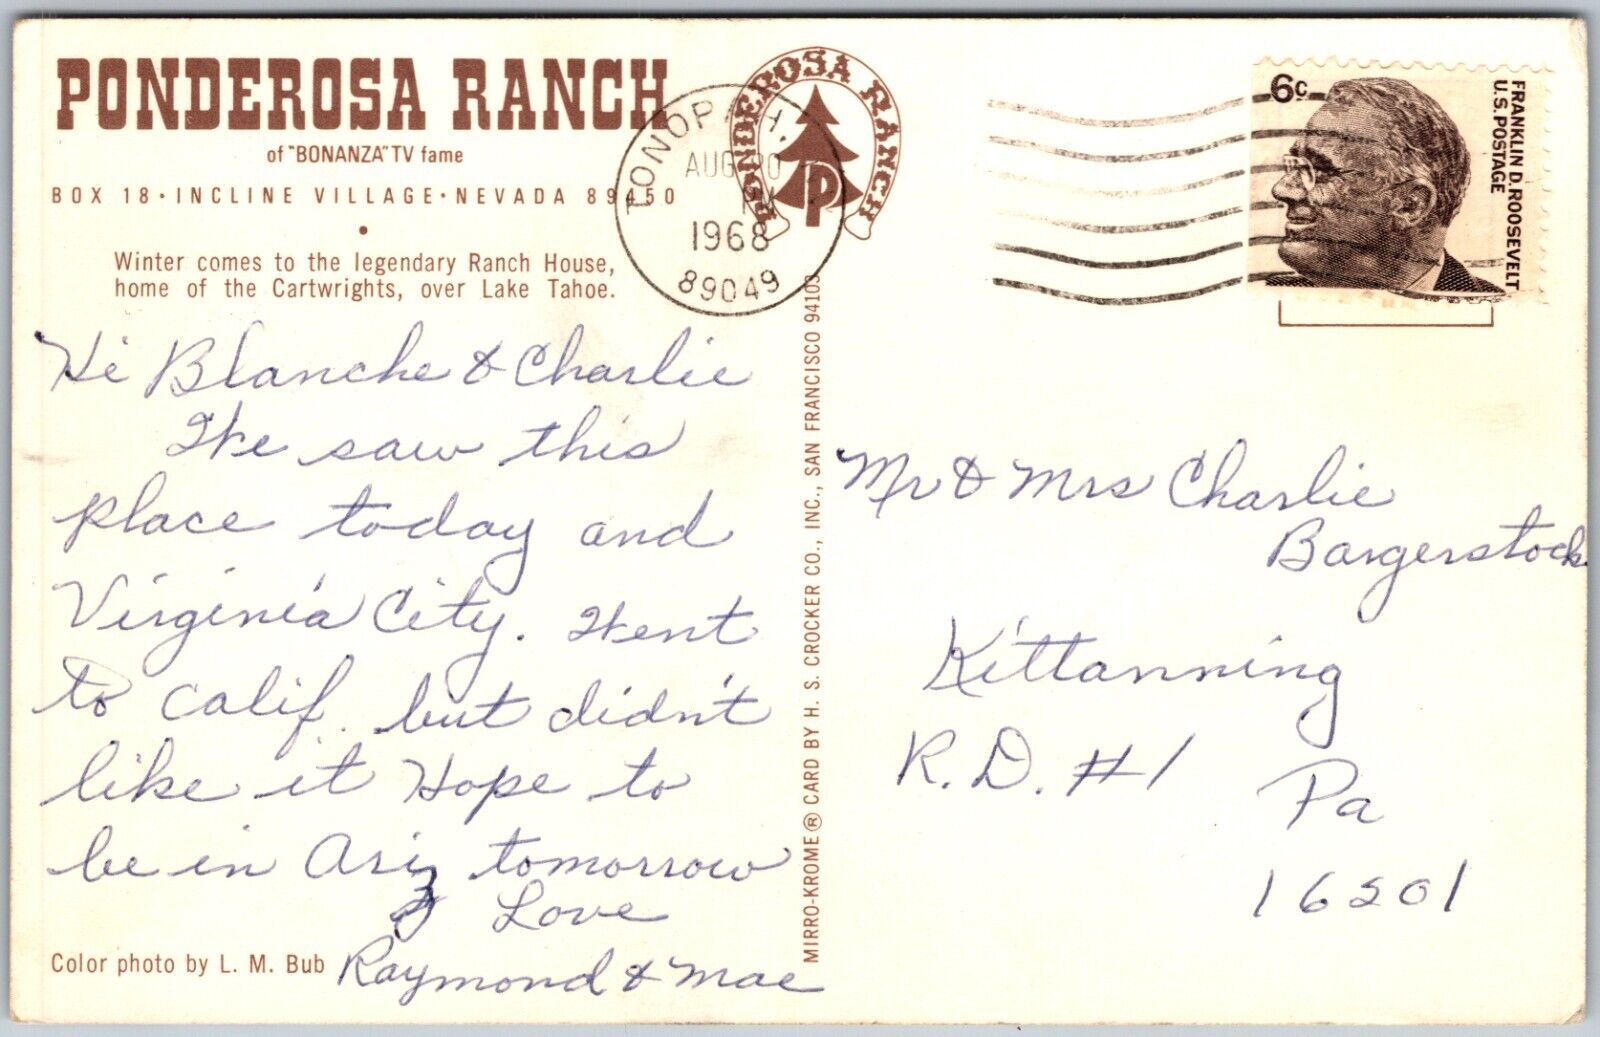 PONDEROSA RANCH
of "BONANZA" TV fame
BOX 18 · INCLINE VILLAGE · NEVADA 89450
Winter comes to the legendary Ranch House,
home of the Cartwrights, over Lake Tahoe.
Hi Blanche & Charlie
We saw this
place today and
Virginia City. Went
to Calif. but didn't
like it Hope to
be in Ariz tomorrow
Love
Raymond & Mae
Color photo by L. M. Bub
PONDEROSA RANCH
P
TONOPAH,
AUG 20
PM
1968
89049
MIRRO-KROME® CARD BY H. S. CROCKER CO., INC., SAN FRANCISCO 94103
6c
FRANKLIN D. ROOSEVELT
U.S. POSTAGE
Mr & Mrs Charlie
Bargerstock
Kittanning
R.D. #1
Pa
16201